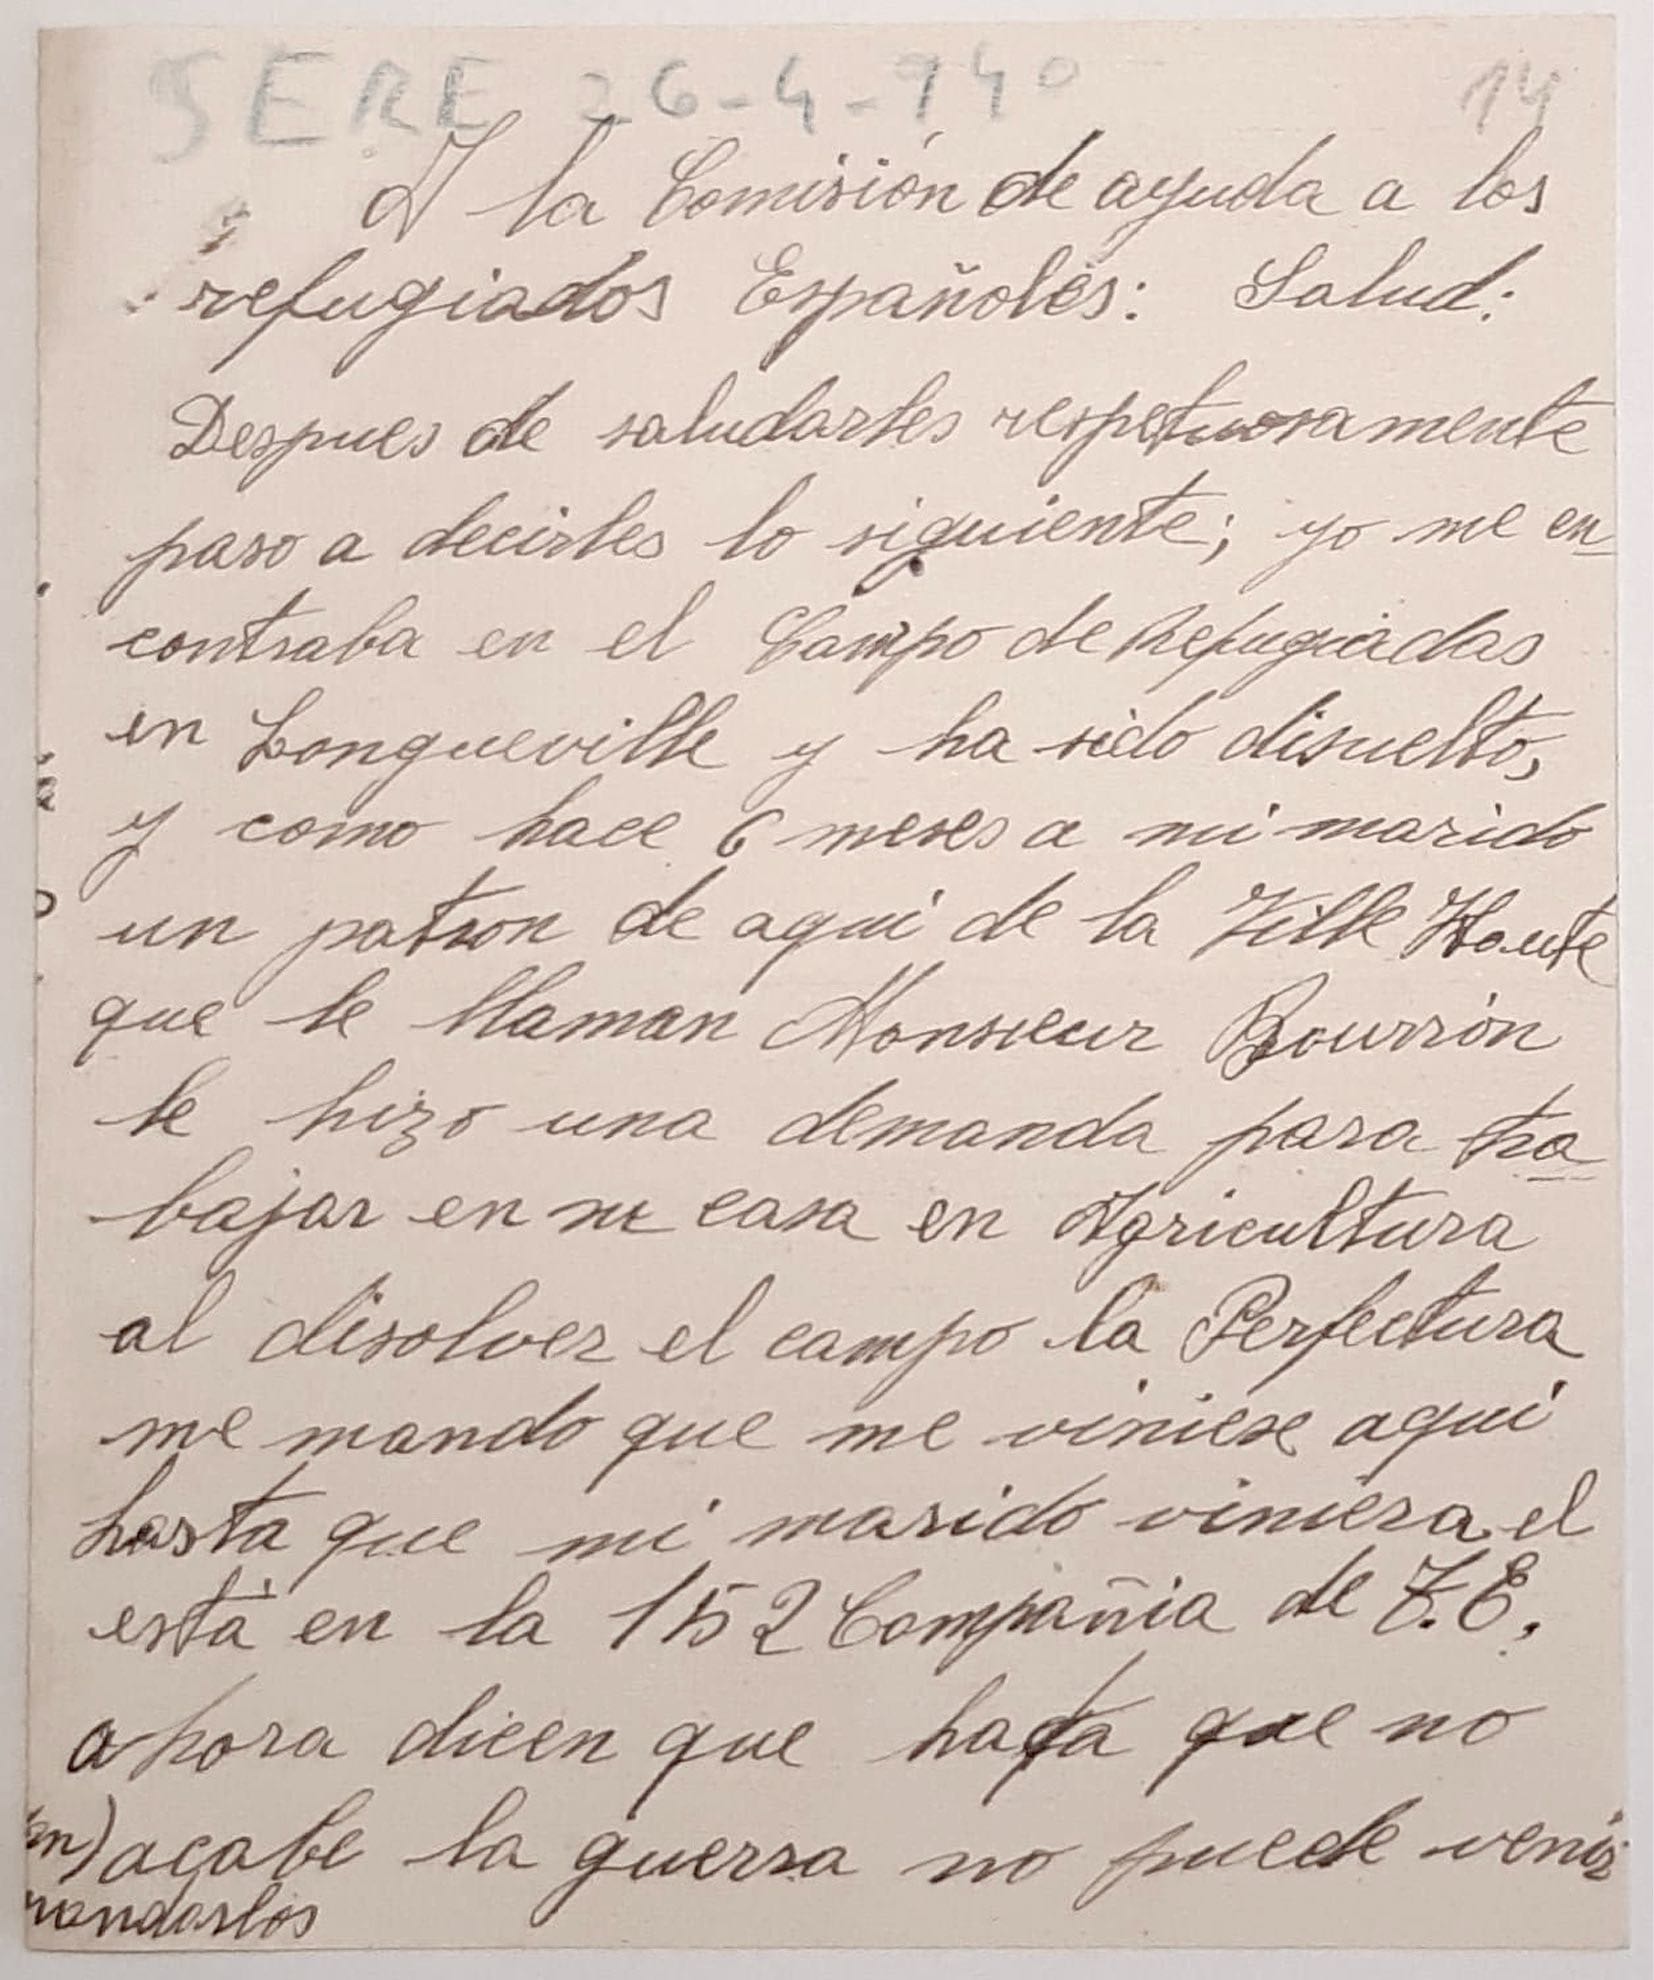 SERE 26-4-940 14
A la Comisión de ayuda a los
refugiados Españoles: Salud:
Despues de saludarles respetuosamente
paso a decirles lo siguiente; yo me en
contraba en el Campo de Refugiadas
en Longueville y ha sido disuelto,
y como hace 6 meses a mi marido
un patron de aqui de la Ville Haute
que le llaman Monsieur Bourrón
le hizo una demanda para tra
bajar en su casa en Agricultura
al disolver el campo la Perfectura
me mando que me viniese aqui
hasta que mi marido viniera el
está en la 152 Compañia de T.E,
ahora dicen que hasta que no
acabe la guerra no puede venir
mandarlos